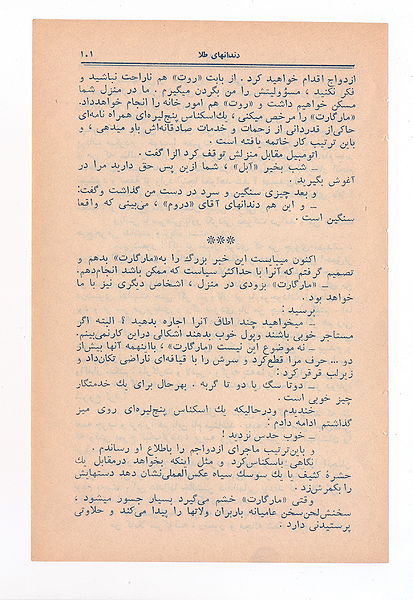 دندانهای طلا ۱۰۱
ازدواج اقدام خواهید کرد . از بابت «روت» هم ناراحت نباشید و
فکر نکنید ، مسؤولیتش را من بگردن میگیرم . ما در منزل شما
مسکن خواهیم داشت و «روت» هم امور خانه را انجام خواهدداد.
«مارگارت» را مرخص میکنی ، یك‌اسکناس پنج‌لیره‌ای همراه نامه‌ای
حاکی‌از قدردانی از زحمات و خدمات صادقانه‌اش باو میدهی ، و
باین ترتیب کار خاتمه یافته است .
اتومبیل مقابل منزلش توقف کرد الزا گفت .
ــ شب بخیر «آبل» ، شما ازین پس حق دارید مرا در
آغوش بگیرید .
و بعد چیزی سنگین و سرد در دست من گذاشت وگفت:
ــ و این هم دندانهای آقای «دروم» ، می‌بینی که واقعا
سنگین است .
***
اکنون میبایست این خبر بزرگ را به«مارگارت» بدهم و
تصمیم گرفتم که آنرا با حداکثر سیاست که ممکن باشد انجام‌دهم.
ــ «مارگارت» بزودی در منزل ، اشخاص دیگری نیز با ما
خواهد بود .
پرسید :
ــ میخواهید چند اطاق آنرا اجاره بدهید ؟ البته اگر
مستاجر خوبی باشند وپول خوب بدهند اشکالی دراین کارنمی‌بینم.
ــ نه موضوع این نیست «مارگارت» ، بااینهمه آنها بیش‌از
دو ... حرف مرا قطع‌کرد و سرش را با قیافه‌ای ناراضی تکان‌داد و
زیرلب قرقر کرد :
ــ دوتا سگ یا دو تا گربه . بهرحال برای یك خدمتکار
چیز خوبی است .
خندیدم ودرحالیکه یك اسکناس پنج‌لیره‌ای روی میز
گذاشتم ادامه دادم :
ــ خوب حدس نزدید !
و باین‌ترتیب ماجرای ازدواجم را باطلاع او رساندم .
نگاهی باسکناس‌کرد و مثل اینکه بخواهد درمقابل یك
حشرهٔ کثیف یا یك سوسك سیاه عکس‌العملی‌نشان دهد دستهایش
را بکمرش‌زد .
وقتی «مارگارت» خشم می‌گیرد بسیار جسور میشود ،
سخنش‌لحن‌سخن عامیانه باربران ولاتها را پیدا می‌کند و حلاوتی
پرستیدنی دارد :